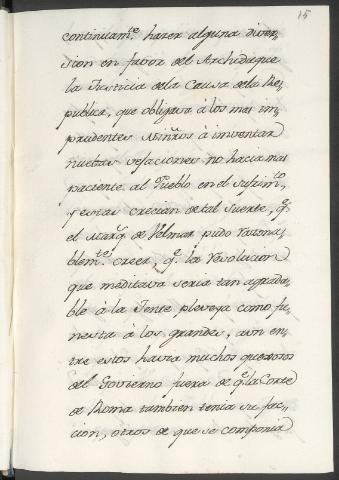 15
continuam.te hazer alguna diver-
sion en favor del Archiduque
la Justicia dela Causa dela Re-
publica, que obligava à los mas im-
prudentes Miñros à imventar
nuebas vejaciones no hacia mas
paciente al Pueblo en el sufrim.to,
y estas crecian detal suerte, q.e
el Marq.s de Velmar pudo razona-
blem.te creer, q.e la Revolucion
que meditava seria tan agrada-
ble à la Jente pleveya como fu-
nesta à los grandes, aun en-
tre estos havia muchos quexosos
del Govierno fuera de q.e la Corte
de Roma tambien tenia su fac-
cion, otros de que se componia